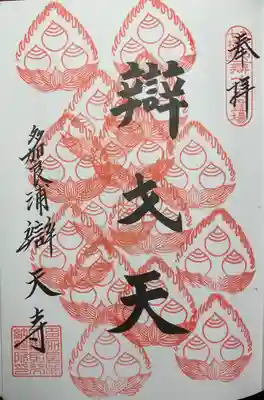 奉拝
辯才天
名良浦辯天寺